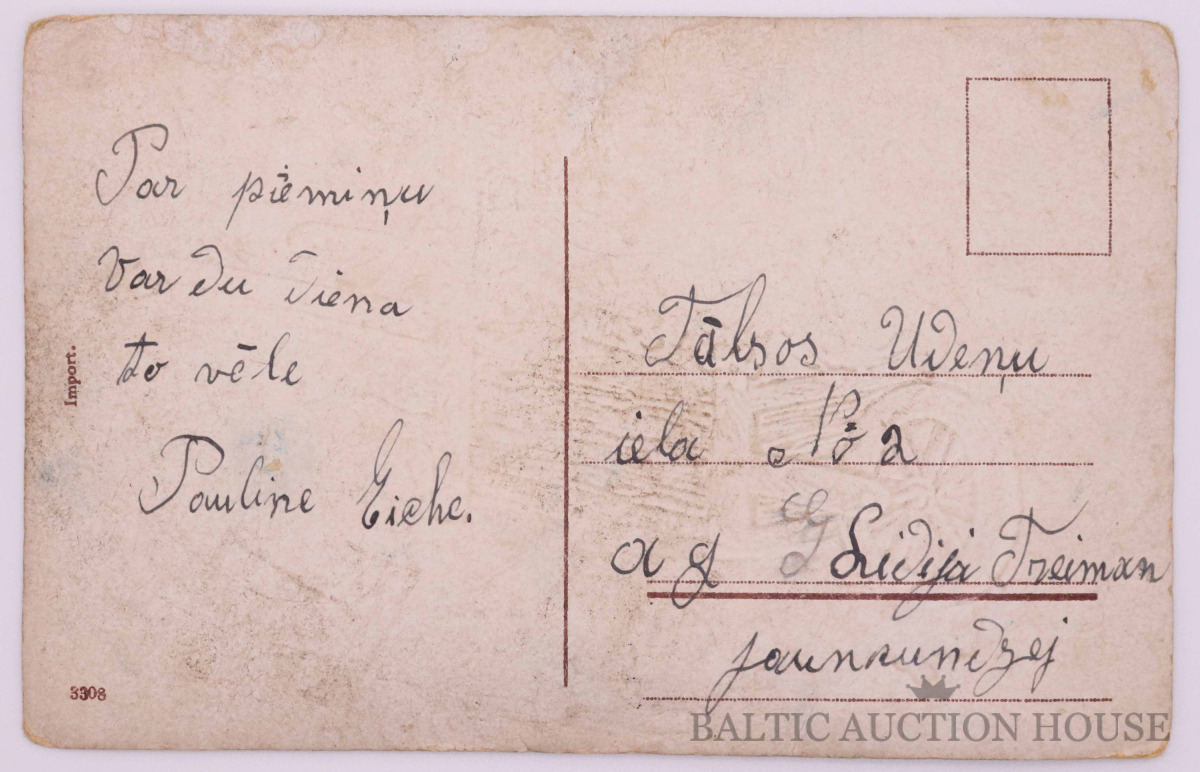 Par piēmiņu
var du diena
to vēle
Pauline Eiche.
Import.
3308
Tālsos Udeņu
iela No 2
a g Lidijai Treiman
jaunkundzej
BALTIC AUCTION HOUSE